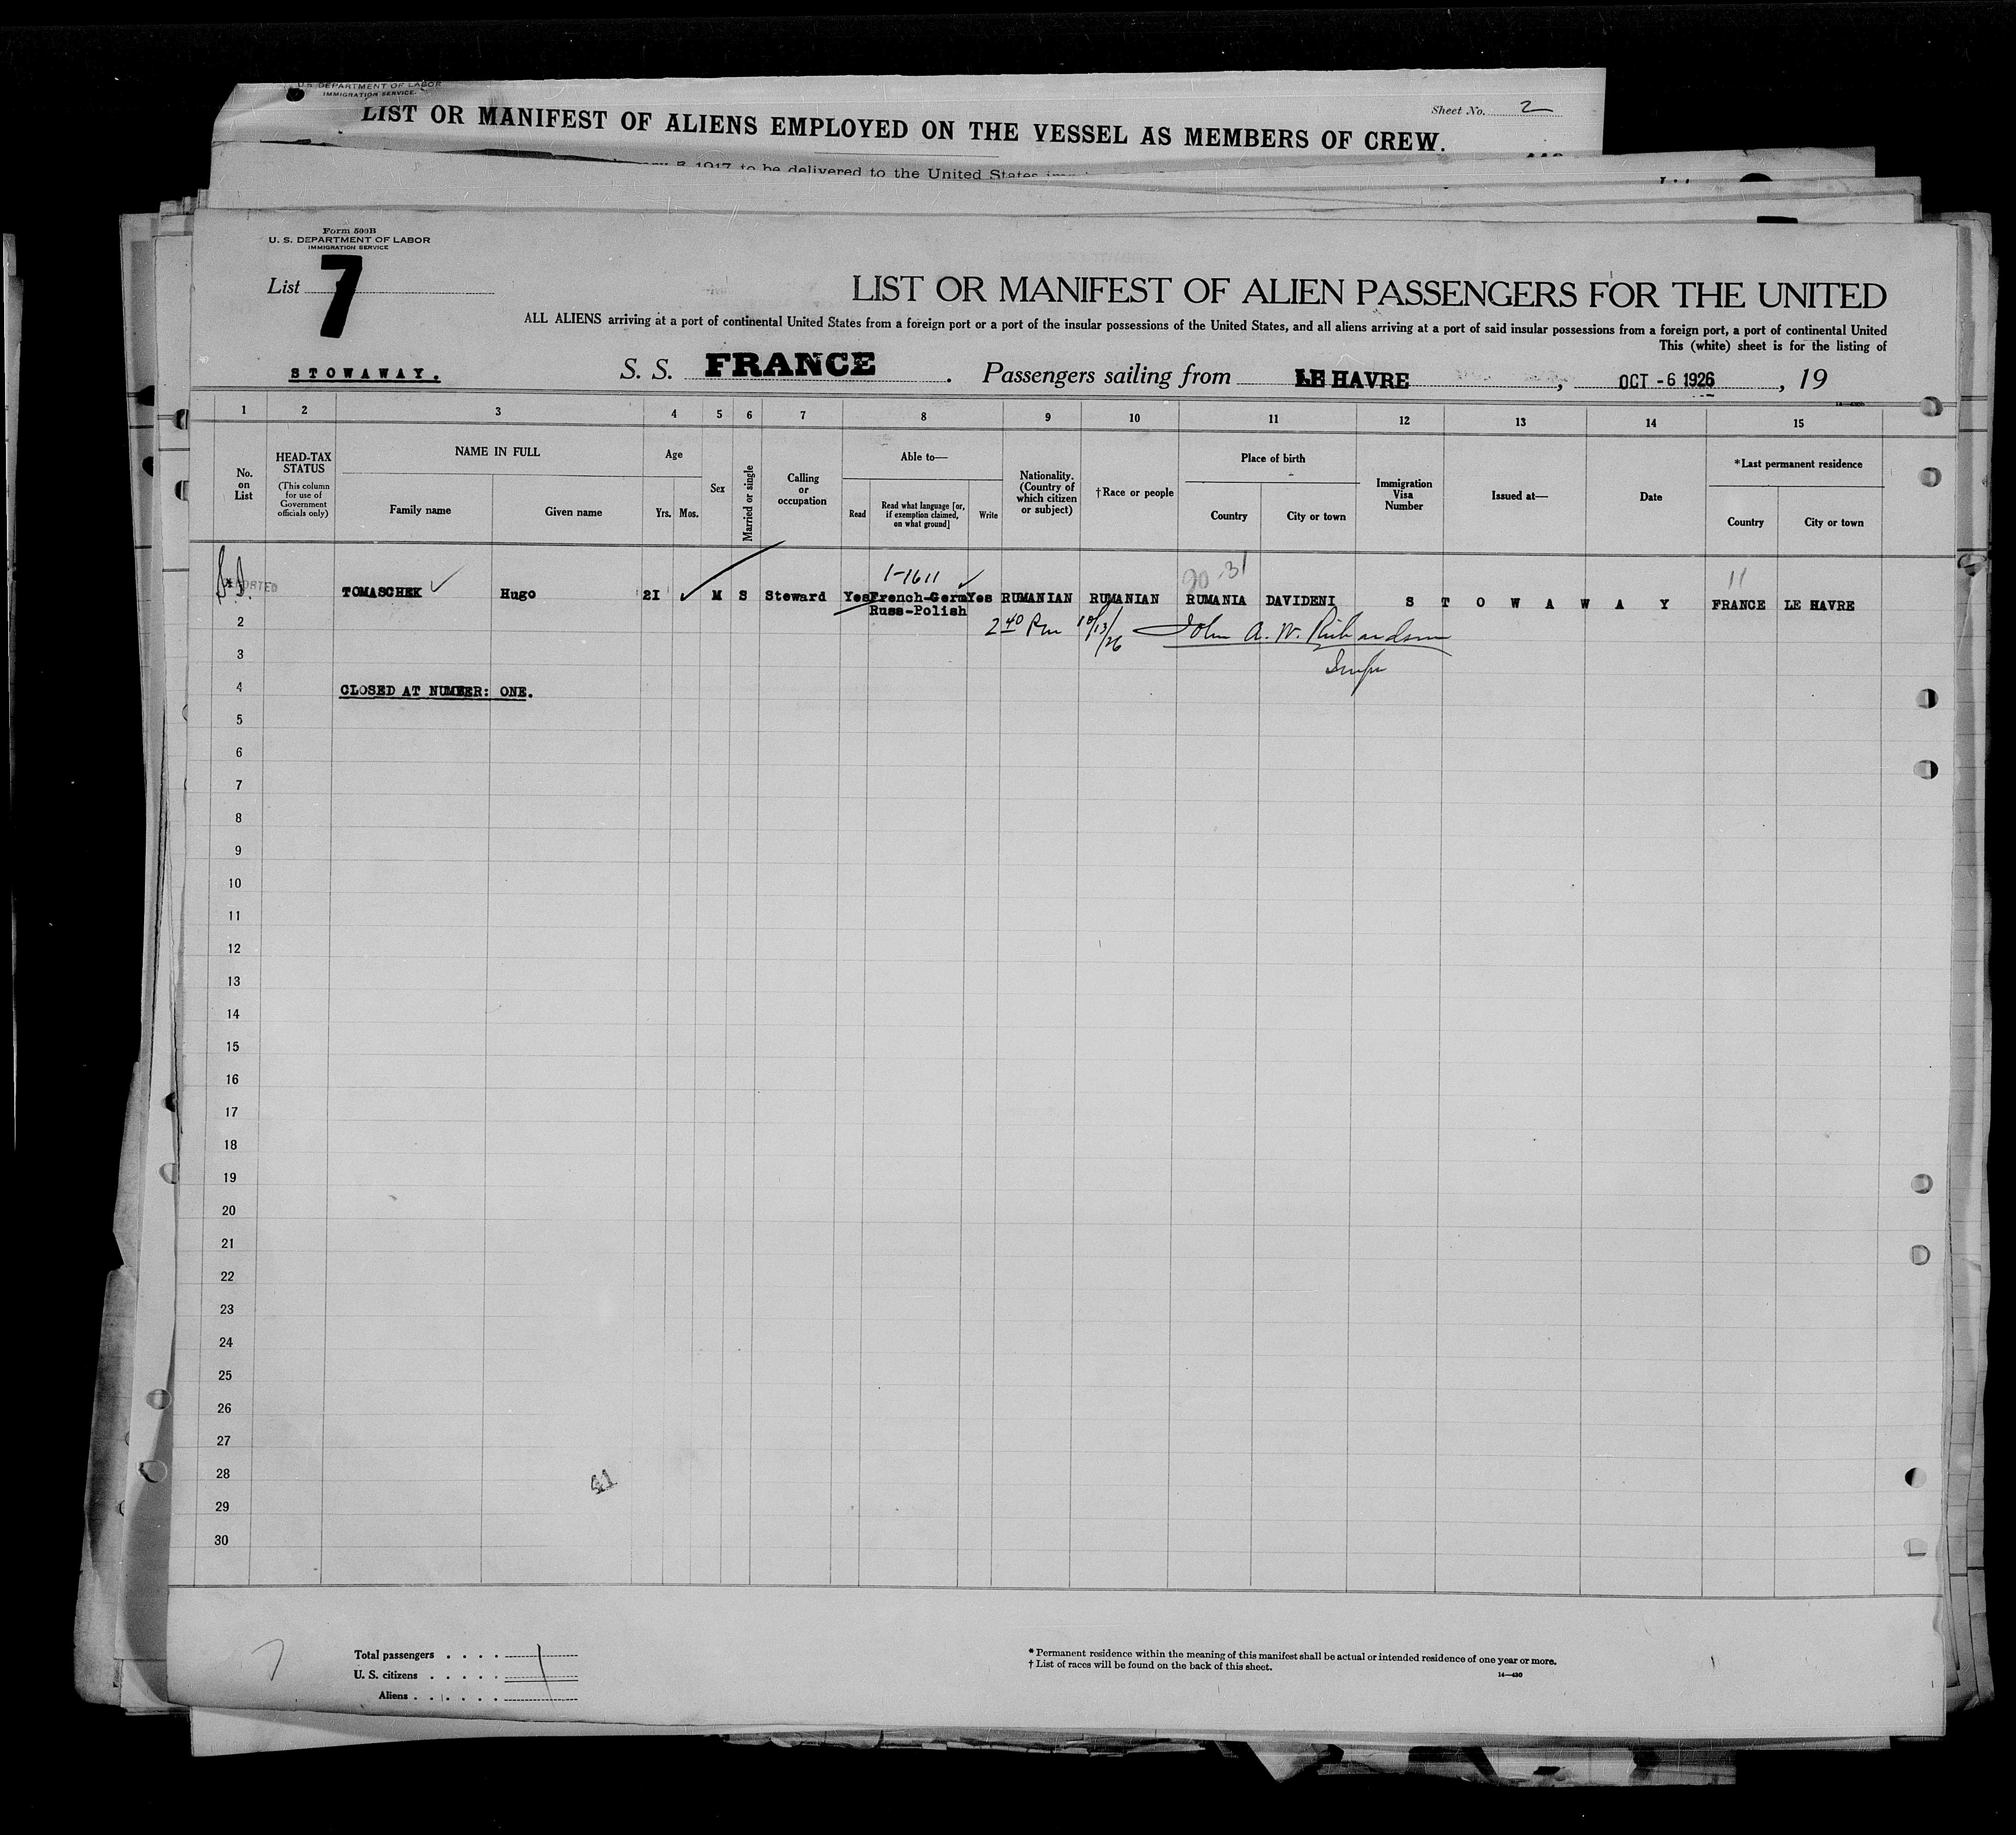 U. S. DEPARTMENT OF LABOR
IMMIGRATION SERVICE.
Sheet No. 2
LIST OR MANIFEST OF ALIENS EMPLOYED ON THE VESSEL AS MEMBERS OF CREW.
1917, to be delivered to the United States
Form 500B
U. S. DEPARTMENT OF LABOR
IMMIGRATION SERVICE
List 7
LIST OR MANIFEST OF ALIEN PASSENGERS FOR THE UNITED
ALL ALIENS arriving at a port of continental United States from a foreign port or a port of the insular possessions of the United States, and all aliens arriving at a port of said insular possessions from a foreign port, a port of continental United
This (white) sheet is for the listing of
STOWAWAY. S. S. FRANCE. Passengers sailing from LE HAVRE, OCT -6 1926, 19
1 2 3 4 5 6 7 8 9 10 11 12 13 14 15
No. on List
HEAD-TAX STATUS (This column for use of Government officials only)
NAME IN FULL
Family name Given name
Age
Yrs. Mos.
Sex
Married or single
Calling or occupation
Able to—
Read
Read what language [or, if exemption claimed, on what ground]
Write
Nationality. (Country of which citizen or subject)
†Race or people
Place of birth
Country City or town
Immigration Visa Number
Issued at—
Date
*Last permanent residence
Country City or town
1-1611
11
TOMASCHEK Hugo 21 M S Steward Yes French-Germ Yes RUMANIAN RUMANIAN RUMANIA DAVIDENI S T O W A W A Y FRANCE LE HAVRE
Russ-Polish
2 2 40 Pm 10/13/26 John A. W. Richardson
3
Insp
4 CLOSED AT NUMBER: ONE.
5
6
7
8
9
10
11
12
13
14
15
16
17
18
19
20
21
22
23
24
25
26
27
28
29
30
7
Total passengers 1
U. S. citizens
Aliens
* Permanent residence within the meaning of this manifest shall be actual or intended residence of one year or more.
† List of races will be found on the back of this sheet.
14—430